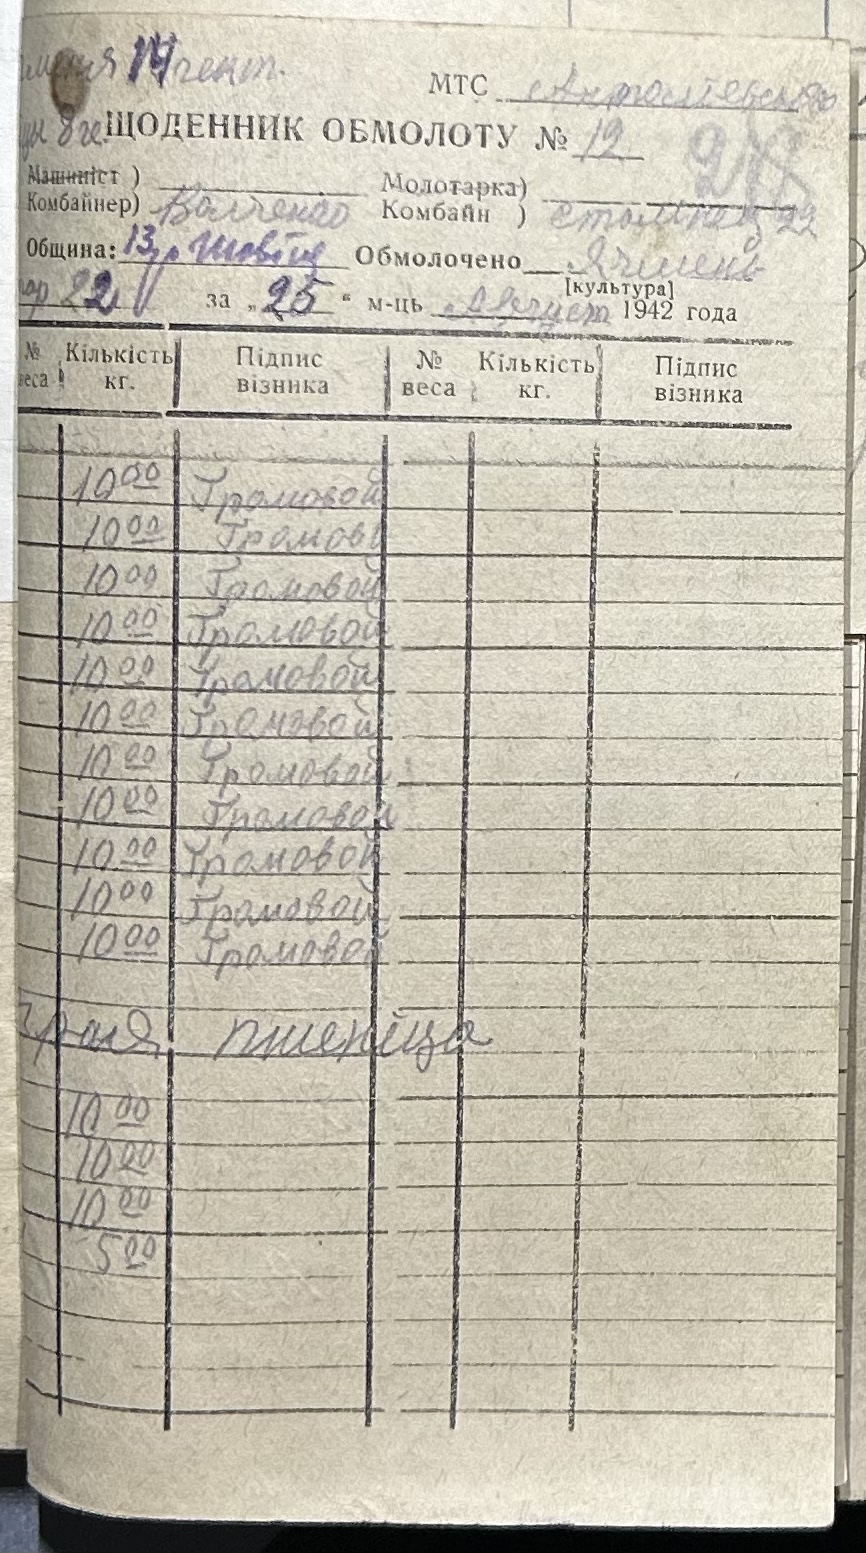 14 гект.
МТС
ЩОДЕННИК ОБМОЛОТУ № 12
Машиніст ) Молотарка)
Комбайнер) Комбайн ) 22
Община: 13 Обмолочено Ячмень
[культура]
22 за „25" м-ць Август 1942 года
№ веса Кількість кг. Підпис візника № веса Кількість кг. Підпис візника
10 00 Громовой
10 00 Громово
10 00 Громовой
10 00 Громовой
10 00 Громовой
10 00 Громовой
10 00 Громовой
10 00 Громовой
10 00 Громовой
10 00 Громовой
10 00 Громовой
пшеніца
10 00
10 00
10 00
5 00